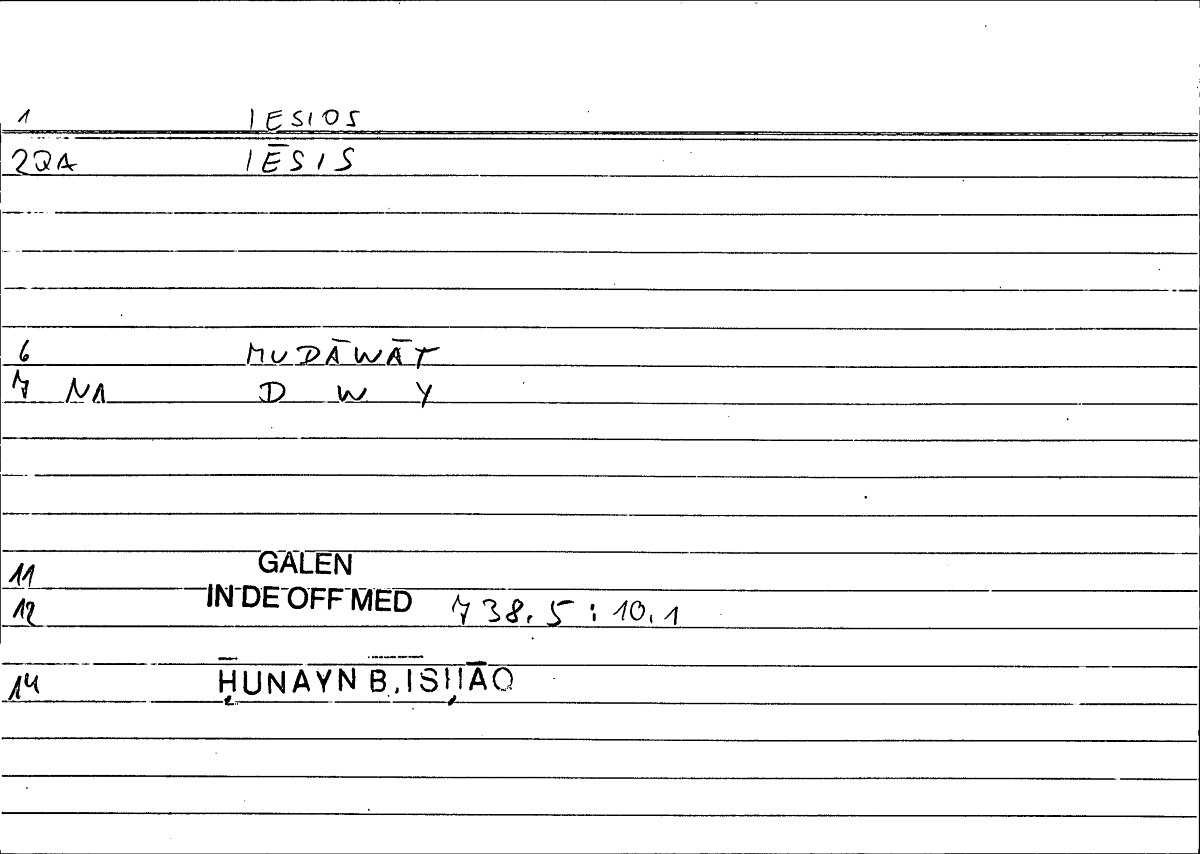 1 IESIOS
2QA IĒSIS
6 MUDĀWĀT
7 NA D W Y
11 GALEN
12 IN DE OFF MED 738.5 : 10.1
14 ḤUNAYN B. ISḤĀQ